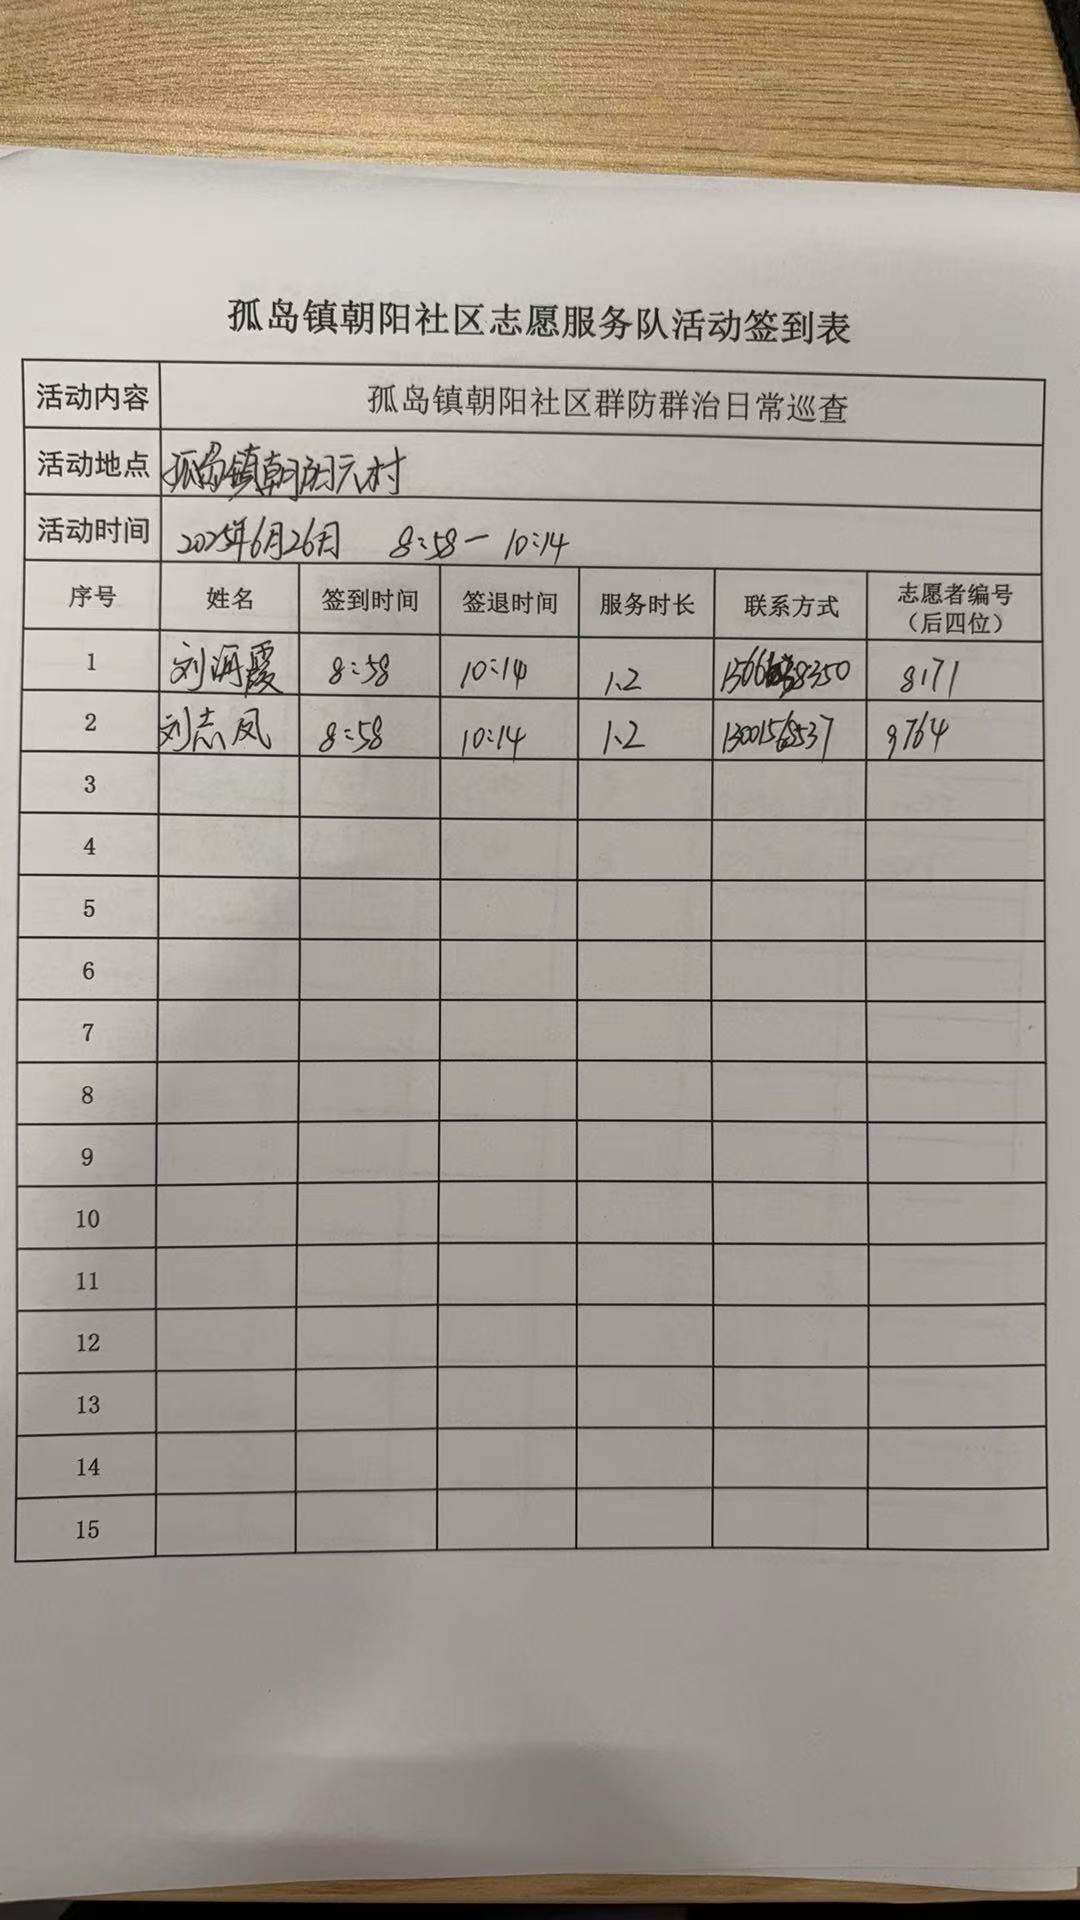 孤岛镇朝阳社区志愿服务队活动签到表
活动内容 孤岛镇朝阳社区群防群治日常巡查
活动地点 孤岛镇朝阳六村
活动时间 2025年6月26日 8:58一10:14
序号 姓名 签到时间 签退时间 服务时长 联系方式 志愿者编号（后四位）
1 刘海霞 8:58 10:14 1.2 8171
2 刘志凤 8:58 10:14 1.2 9764
3
4
5
6
7
8
9
10
11
12
13
14
15